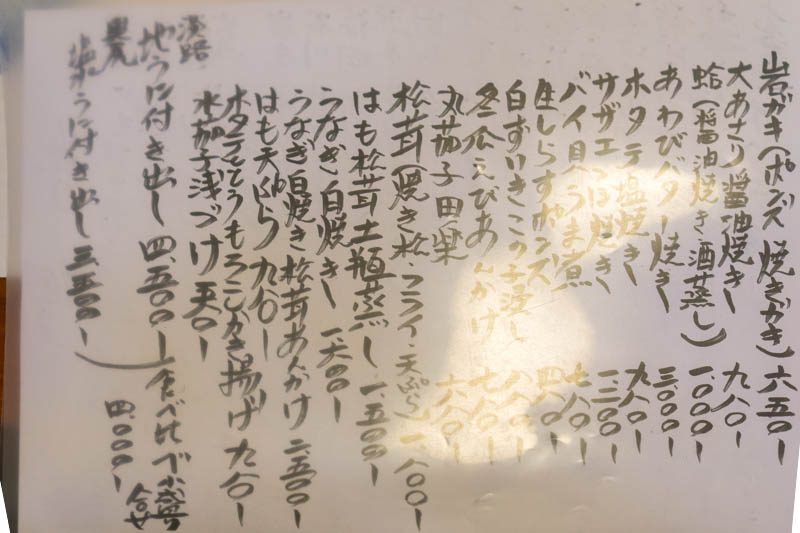 岩ガキ(ポンズ 焼きガキ) 六五〇ー
大あさり醤油焼き 九八〇ー
蛤(醤油焼き 酒蒸し) 一〇〇〇ー
あわびバター焼き 三〇〇〇ー
ホタテ塩焼き 九八〇ー
サザエつぼ焼き 一二〇〇ー
バイ貝うま煮 七八〇ー
生しらすポンズ 四八〇ー
白ずいきごま浸し 八八〇ー
冬瓜えびあんかけ 七八〇ー
丸茄子田楽 六八〇ー
松茸(焼き松 フライ・天ぷら) 一八〇〇ー
はも松茸土瓶蒸し 一、五〇〇ー
うなぎ白焼き 一八〇〇ー
うなぎ白焼き 松茸あんかけ 二五〇〇ー
はも天ぷら 九八〇ー
ホタテとうもろこしかき揚げ 九八〇ー
水茄子浅づけ 五八〇ー
淡路
地うに付き出し 四、五〇〇ー
奥尻
うに付き出し 三、五〇〇ー
食べ比べ小盛り合せ
四、〇〇〇ー